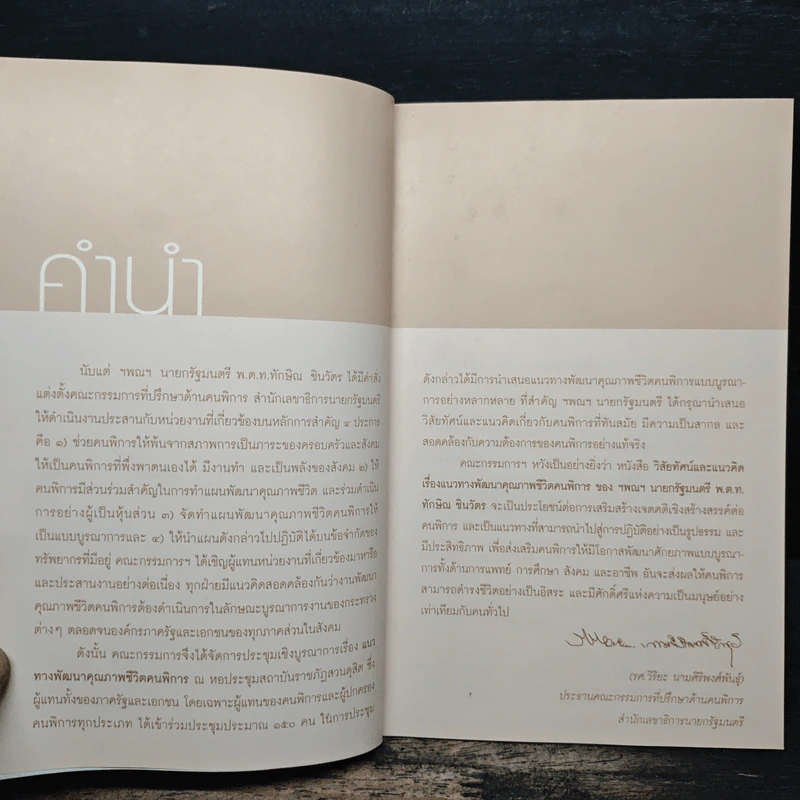 คำนำ
นับแต่ ฯพณฯ นายกรัฐมนตรี พ.ต.ท.ทักษิณ ชินวัตร ได้มีคำสั่ง
แต่งตั้งคณะกรรมการที่ปรึกษาด้านคนพิการ สำนักเลขาธิการนายกรัฐมนตรี
ให้ดำเนินงานประสานกับหน่วยงานที่เกี่ยวข้องบนหลักการสำคัญ ๔ ประการ
คือ ๑) ช่วยคนพิการให้พ้นจากสภาพการเป็นภาระของครอบครัวและสังคม
ให้เป็นคนพิการที่พึ่งพาตนเองได้ มีงานทำ และเป็นพลังของสังคม ๒) ให้
คนพิการมีส่วนร่วมสำคัญในการทำแผนพัฒนาคุณภาพชีวิต และร่วมดำเนิน
การอย่างผู้เป็นหุ้นส่วน ๓) จัดทำแผนพัฒนาคุณภาพชีวิตคนพิการให้
เป็นแบบบูรณาการและ ๔) ให้นำแผนดังกล่าวไปปฏิบัติได้บนข้อจำกัดของ
ทรัพยากรที่มีอยู่ คณะกรรมการฯ ได้เชิญผู้แทนหน่วยงานที่เกี่ยวข้องมาหารือ
และประสานงานอย่างต่อเนื่อง ทุกฝ่ายมีแนวคิดสอดคล้องกันว่างานพัฒนา
คุณภาพชีวิตคนพิการต้องดำเนินการในลักษณะบูรณาการงานของกระทรวง
ต่างๆ ตลอดจนองค์กรภาครัฐและเอกชนของทุกภาคส่วนในสังคม
ดังนั้น คณะกรรมการจึงได้จัดการประชุมเชิงบูรณาการเรื่อง แนว
ทางพัฒนาคุณภาพชีวิตคนพิการ ณ หอประชุมสถาบันราชภัฏสวนดุสิต ซึ่ง
ผู้แทนทั้งของภาครัฐและเอกชน โดยเฉพาะผู้แทนของคนพิการและผู้ปกครอง
คนพิการทุกประเภท ได้เข้าร่วมประชุมประมาณ ๑๕๐ คน ในการประชุม
ดังกล่าวได้มีการนำเสนอแนวทางพัฒนาคุณภาพชีวิตคนพิการแบบบูรณา-
การอย่างหลากหลาย ที่สำคัญ ฯพณฯ นายกรัฐมนตรี ได้กรุณานำเสนอ
วิสัยทัศน์และแนวคิดเกี่ยวกับคนพิการที่ทันสมัย มีความเป็นสากล และ
สอดคล้องกับความต้องการของคนพิการอย่างแท้จริง
คณะกรรมการฯ หวังเป็นอย่างยิ่งว่า หนังสือ วิสัยทัศน์และแนวคิด
เรื่องแนวทางพัฒนาคุณภาพชีวิตคนพิการ ของ ฯพณฯ นายกรัฐมนตรี พ.ต.ท.
ทักษิณ ชินวัตร จะเป็นประโยชน์ต่อการเสริมสร้างเจตคติเชิงสร้างสรรค์ต่อ
คนพิการ และเป็นแนวทางที่สามารถนำไปสู่การปฏิบัติอย่างเป็นรูปธรรม และ
มีประสิทธิภาพ เพื่อส่งเสริมคนพิการให้มีโอกาสพัฒนาศักยภาพแบบบูรณา-
การทั้งด้านการแพทย์ การศึกษา สังคม และอาชีพ อันจะส่งผลให้คนพิการ
สามารถดำรงชีวิตอย่างเป็นอิสระ และมีศักดิ์ศรีแห่งความเป็นมนุษย์อย่าง
เท่าเทียมกับคนทั่วไป
(รศ.วิริยะ นามศิริพงศ์พันธุ์)
ประธานคณะกรรมการที่ปรึกษาด้านคนพิการ
สำนักเลขาธิการนายกรัฐมนตรี